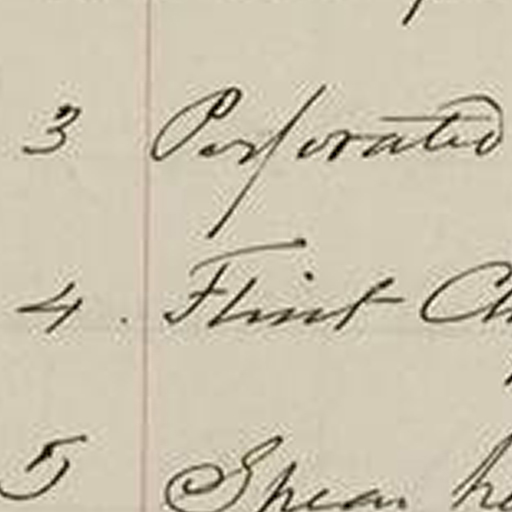 3 Perforated
4. Flint Ch
5 Spear he